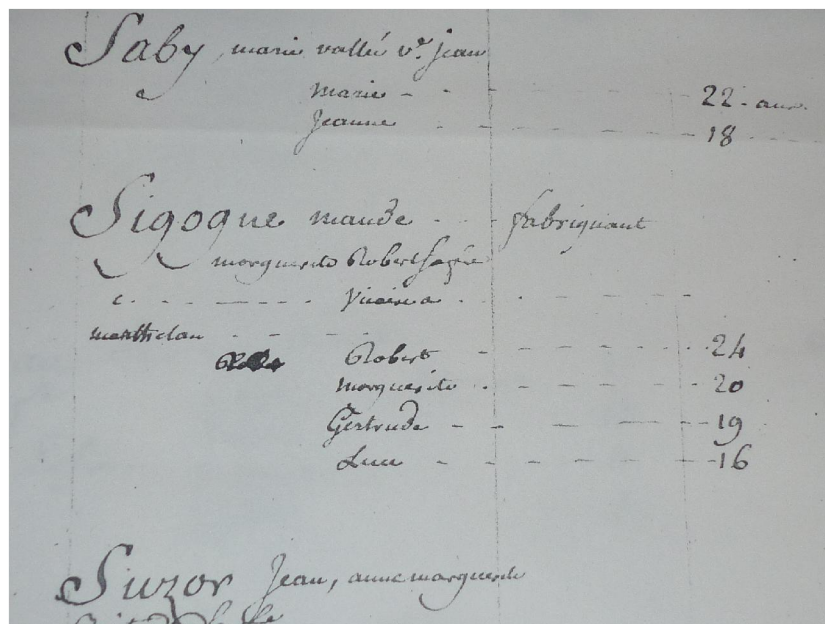 Saby, marie vallée v.e jean
marie - - - 22. ans.
Jeanne - - - 18
Sigogne mande - - - fabriquant
morguerite Robert sa fe
c. - - - - Vicaire a - - -
- - -
Robert - - - 24
morguerite - - - 20
Gertrude - - - 19
Luce - - - 16
Suzor Jean, anne marguerite